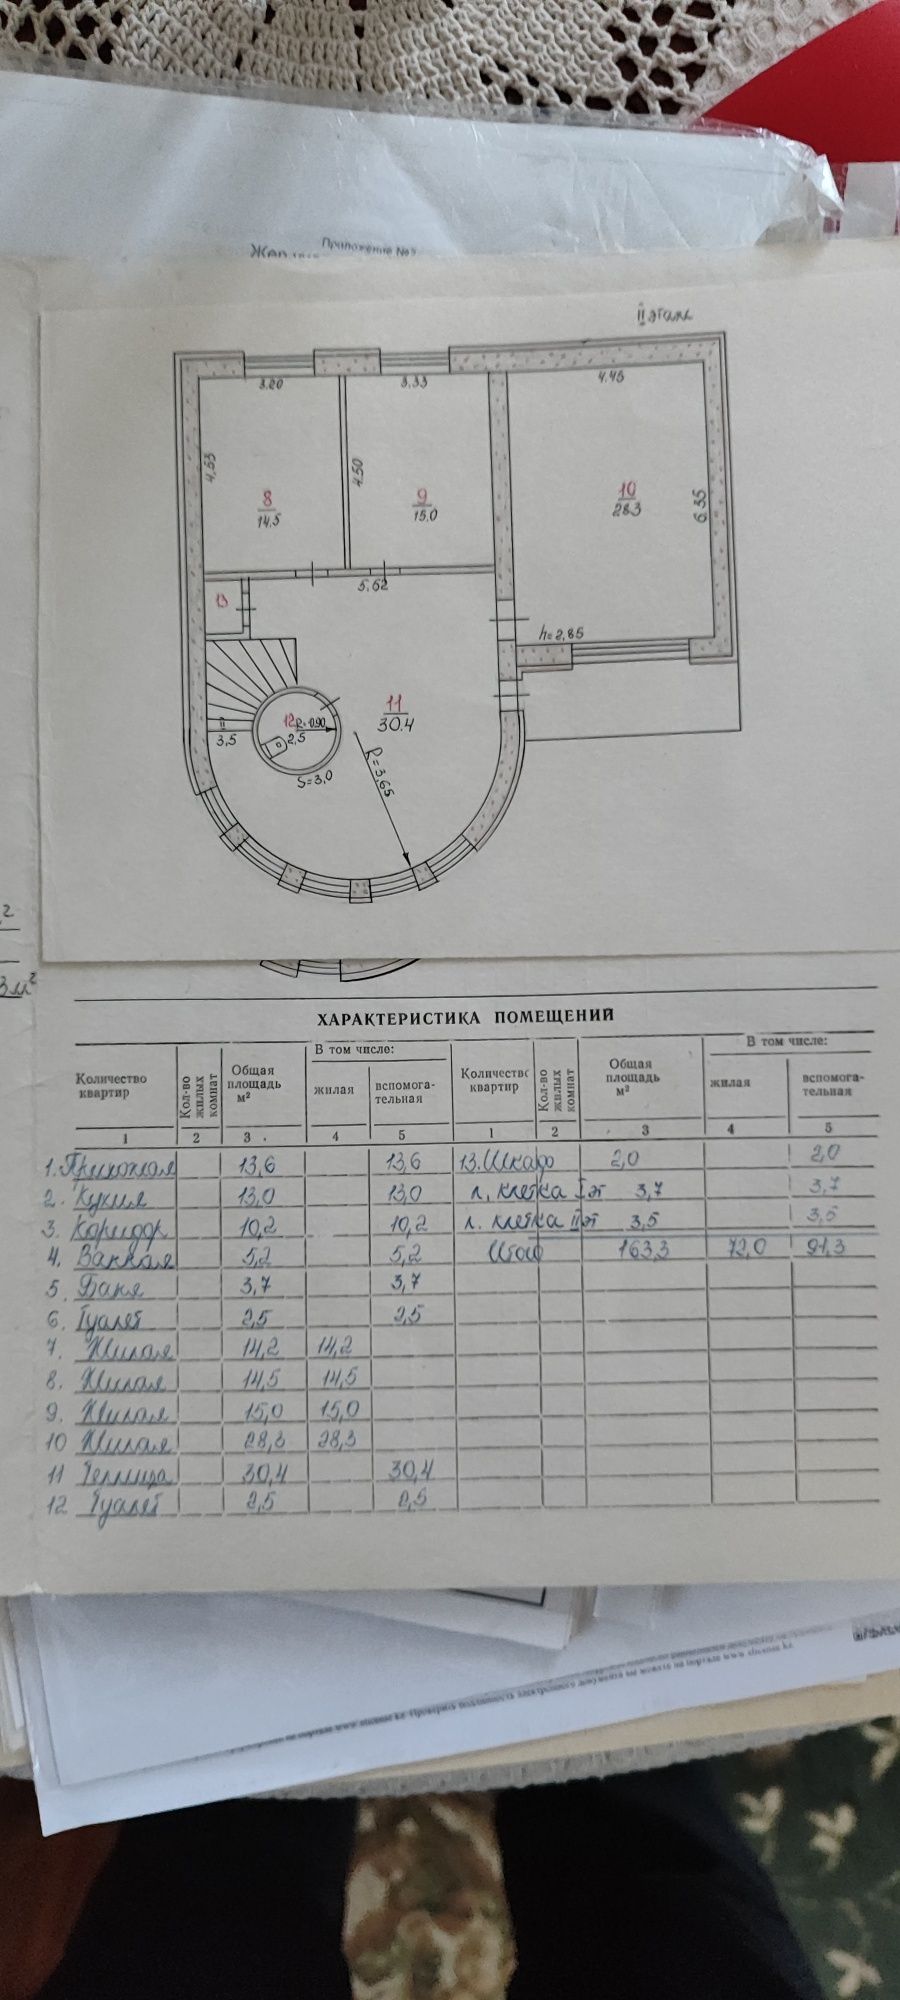 Приложение №2
II этаж
3.20
3.33
4.45
4.53
4.50
6.35
8
14.5
9
15.0
10
28.3
13
5.62
h=2,85
11
30.4
12
R=0.90
2,5
II
3,5
S=3.0
R=3,65
3м²
ХАРАКТЕРИСТИКА ПОМЕЩЕНИЙ
Количество квартир Кол-во жилых комнат Общая площадь м² В том числе: жилая вспомога-тельная Количество квартир Кол-во жилых комнат Общая площадь м² В том числе: жилая вспомога-тельная
1 2 3 4 5 1 2 3 4 5
1. Прихожая 13,6 13,6 13. Шкаф 2,0 2,0
2. Кухня 13,0 13,0 л. клетка I эт 3,7 3,7
3. Коридор 10,2 10,2 л. клетка II эт 3,5 3,5
4. Ванная 5,2 5,2 Итого 163,3 72,0 91,3
5. Баня 3,7 3,7
6. Туалет 2,5 2,5
7. Жилая 14,2 14,2
8. Жилая 14,5 14,5
9. Жилая 15,0 15,0
10 Жилая 28,3 28,3
11 Теплица 30,4 30,4
12 Туалет 2,5 2,5